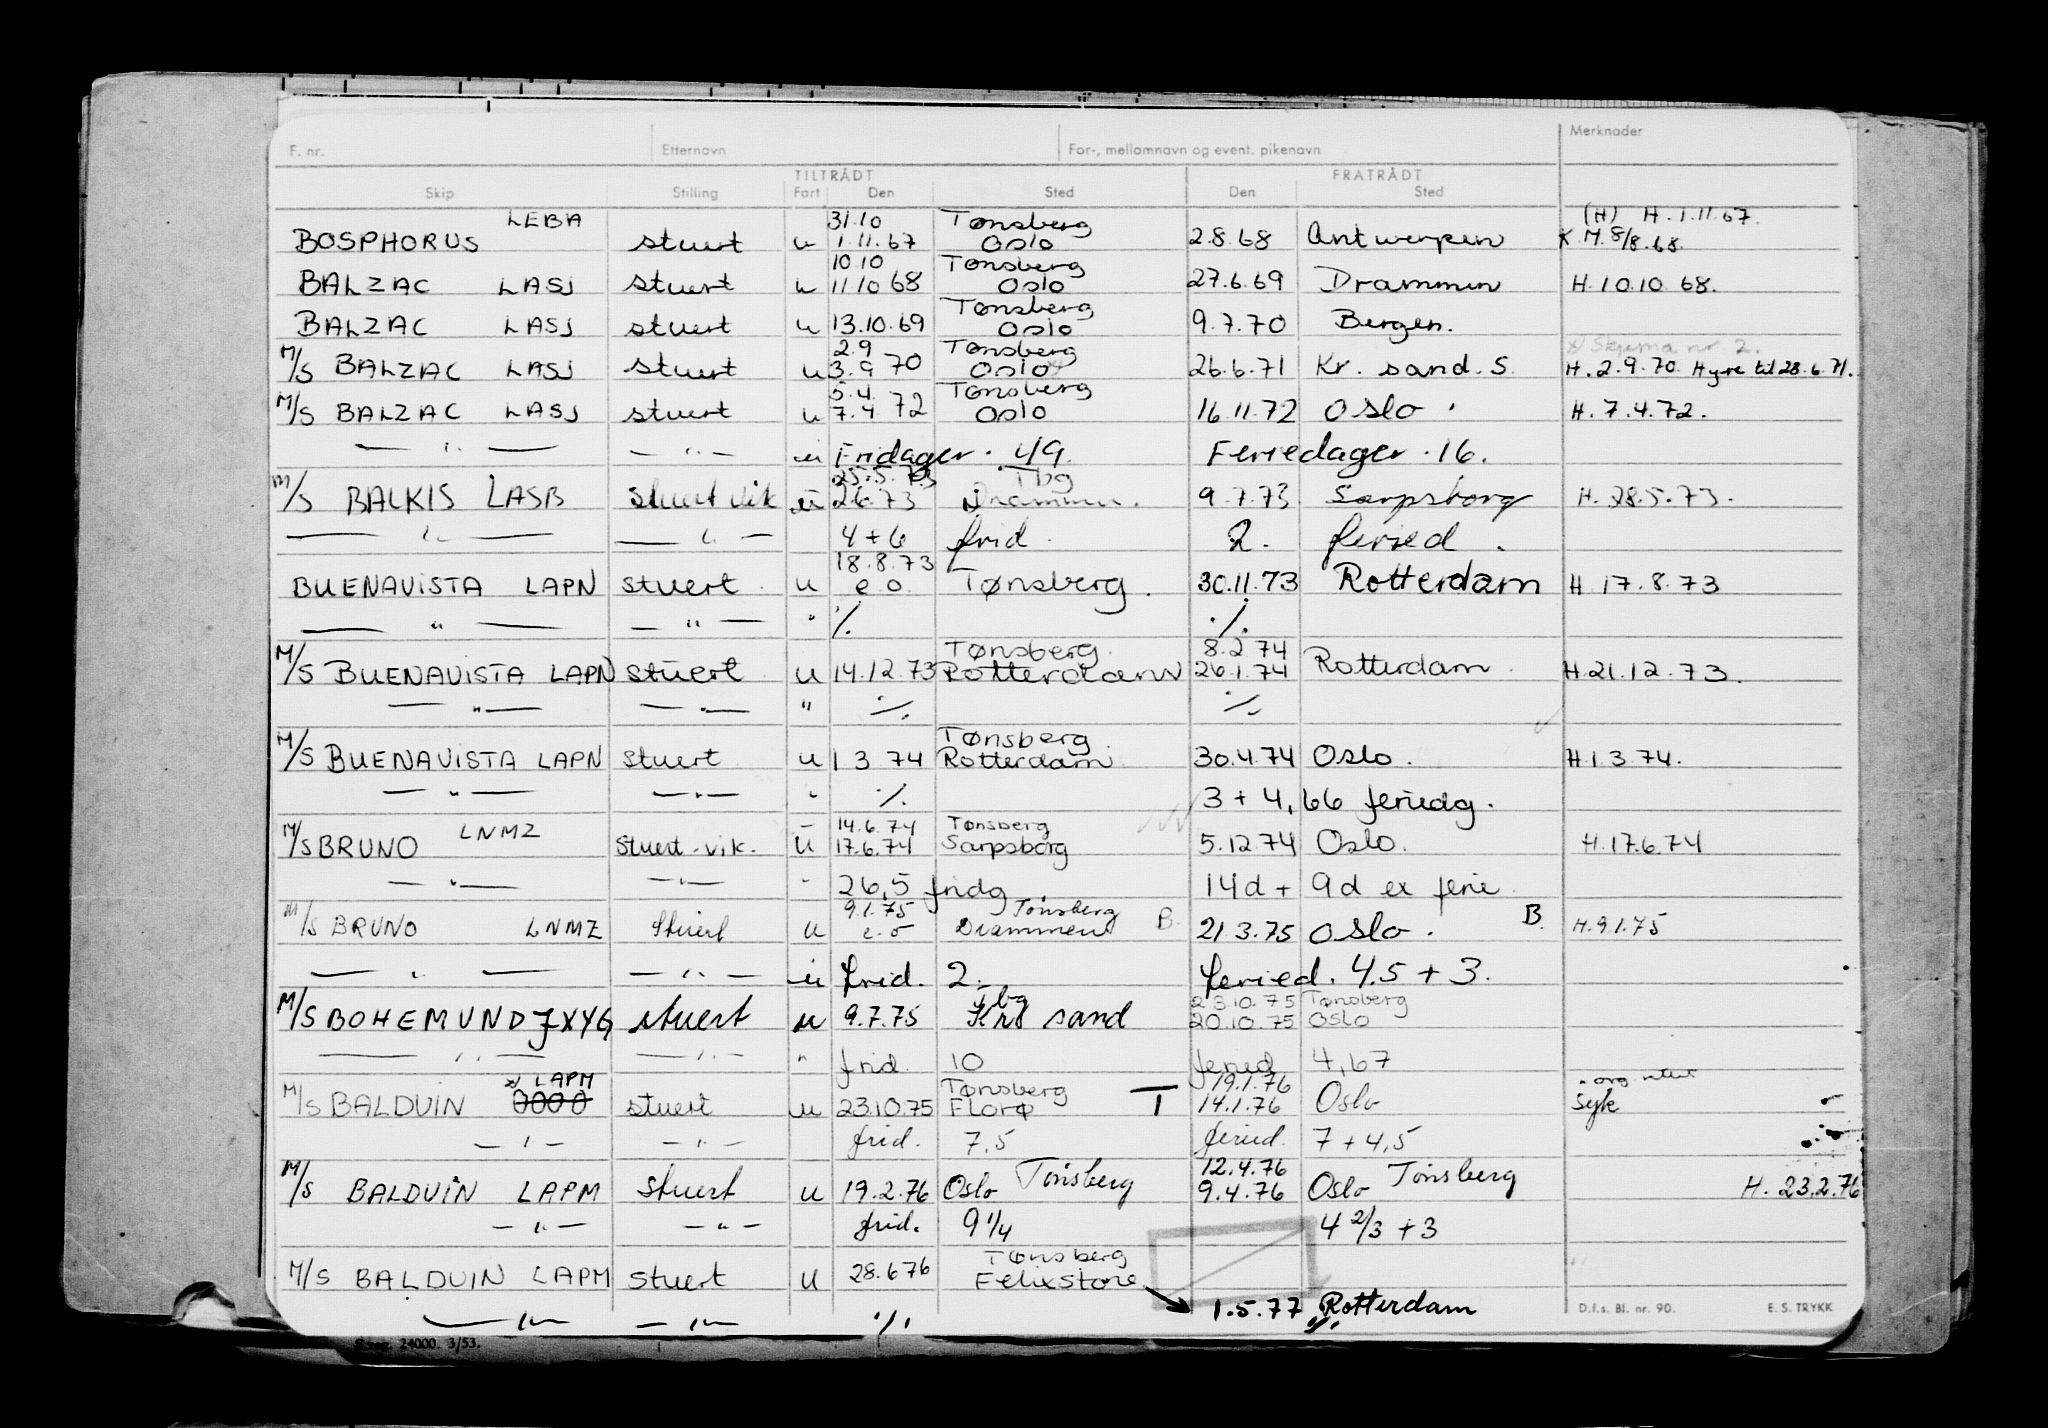 Merknader
F. nr. Etternavn For-, mellomnavn og event. pikenavn
TILTRÅDT FRATRÅDT
Skip Stilling Fart Den Sted Den Sted
LEBA 31.10 Tønsberg (H) H. 1.11.67.
BOSPHORUS stuert u 1.11.67 Oslo 2.8.68 Antwerpen K.M. 8/8.68.
10.10 Tønsberg
BALZAC LASJ stuert u 11 10 68 Oslo 27.6.69 Drammen H. 10.10 68.
Tønsberg
BALZAC LASJ stuert u 13.10.69 Oslo 9.7.70 Bergen.
2.9 Tønsberg x) Skjema nr 2.
M/S BALZAC LASJ stuert u 3.9 70 Oslo x) 26.6.71 Kr. sand. S. H. 2.9.70. Hyre til 28.6.71.
5.4. Tønsberg
M/S BALZAC LASJ stuert u 7.4. 72 Oslo 16.11.72 Oslo . H. 7.4.72.
— " — — " — u Fridager . 49. Feriedager . 16.
25.5.73 Tbg
M/S BALKIS LASB stuert vik u 2.6.73 Drammen. 9.7.73. Sarpsborg H. 28.5.73.
— " — — " — 4+6 frid. 2. feried.
18.8.73
BUENAVISTA LAPN stuert u e.o. Tønsberg. 30.11.73 Rotterdam H. 17.8.73
— " — — " — " ·/. ·/.
Tønsberg. 8.2 74
M/S BUENAVISTA LAPN stuert u 14.12.73 Rotterdam 26.1.74 Rotterdam. H. 21.12.73.
— " — — " — " ·/. ·/.
Tønsberg.
M/S BUENAVISTA LAPN stuert u 1 3 74 Rotterdam 30.4.74 Oslo. H. 1.3.74.
— " — — " — " ·/. 3 + 4,66 feriedg.
LNMZ 14.6.74 Tønsberg
M/S BRUNO stuert-vik. u 17.6.74 Sarpsborg 5.12.74 Oslo. H. 17.6.74
— " — — " — " 26,5 fridg. 14d + 9d ex ferie.
9.1.75 Tønsberg
M/S BRUNO LNMZ Stuert u e.o Drammen B. 21.3.75 Oslo. B. H. 9.1.75
— " — — " — u frid. 2. feried. 4.5 + 3.
Tbg 23.10.75 Tønsberg
M/S BOHEMUND JXYG stuert u 9.7.75 Krs sand 20.10.75 Oslo
— " — — " — " frid. 10 feried 4,67
x) LAPM Tønsberg 19.1.76
M/S BALDUIN stuert u 23.10.75 Florø T 14.1.76 Oslo Syk
— " — — " — frid. 7,5 feried. 7 + 4,5
12.4.76
M/S BALDUIN LAPM Stuert u 19.2.76 Oslo Tønsberg 9.4.76 Oslo Tønsberg H. 23.2.76
— " — — " — frid. 9 1/4 4 2/3 + 3
Tønsberg
M/S BALDUIN LAPM stuert u 28.6 76 Felixstowe
— " — — " — ·/. 1.5.77 Rotterdam ·/.
D.f.s. Bl. nr. 90. E. S. TRYKK
24000. 3/53.